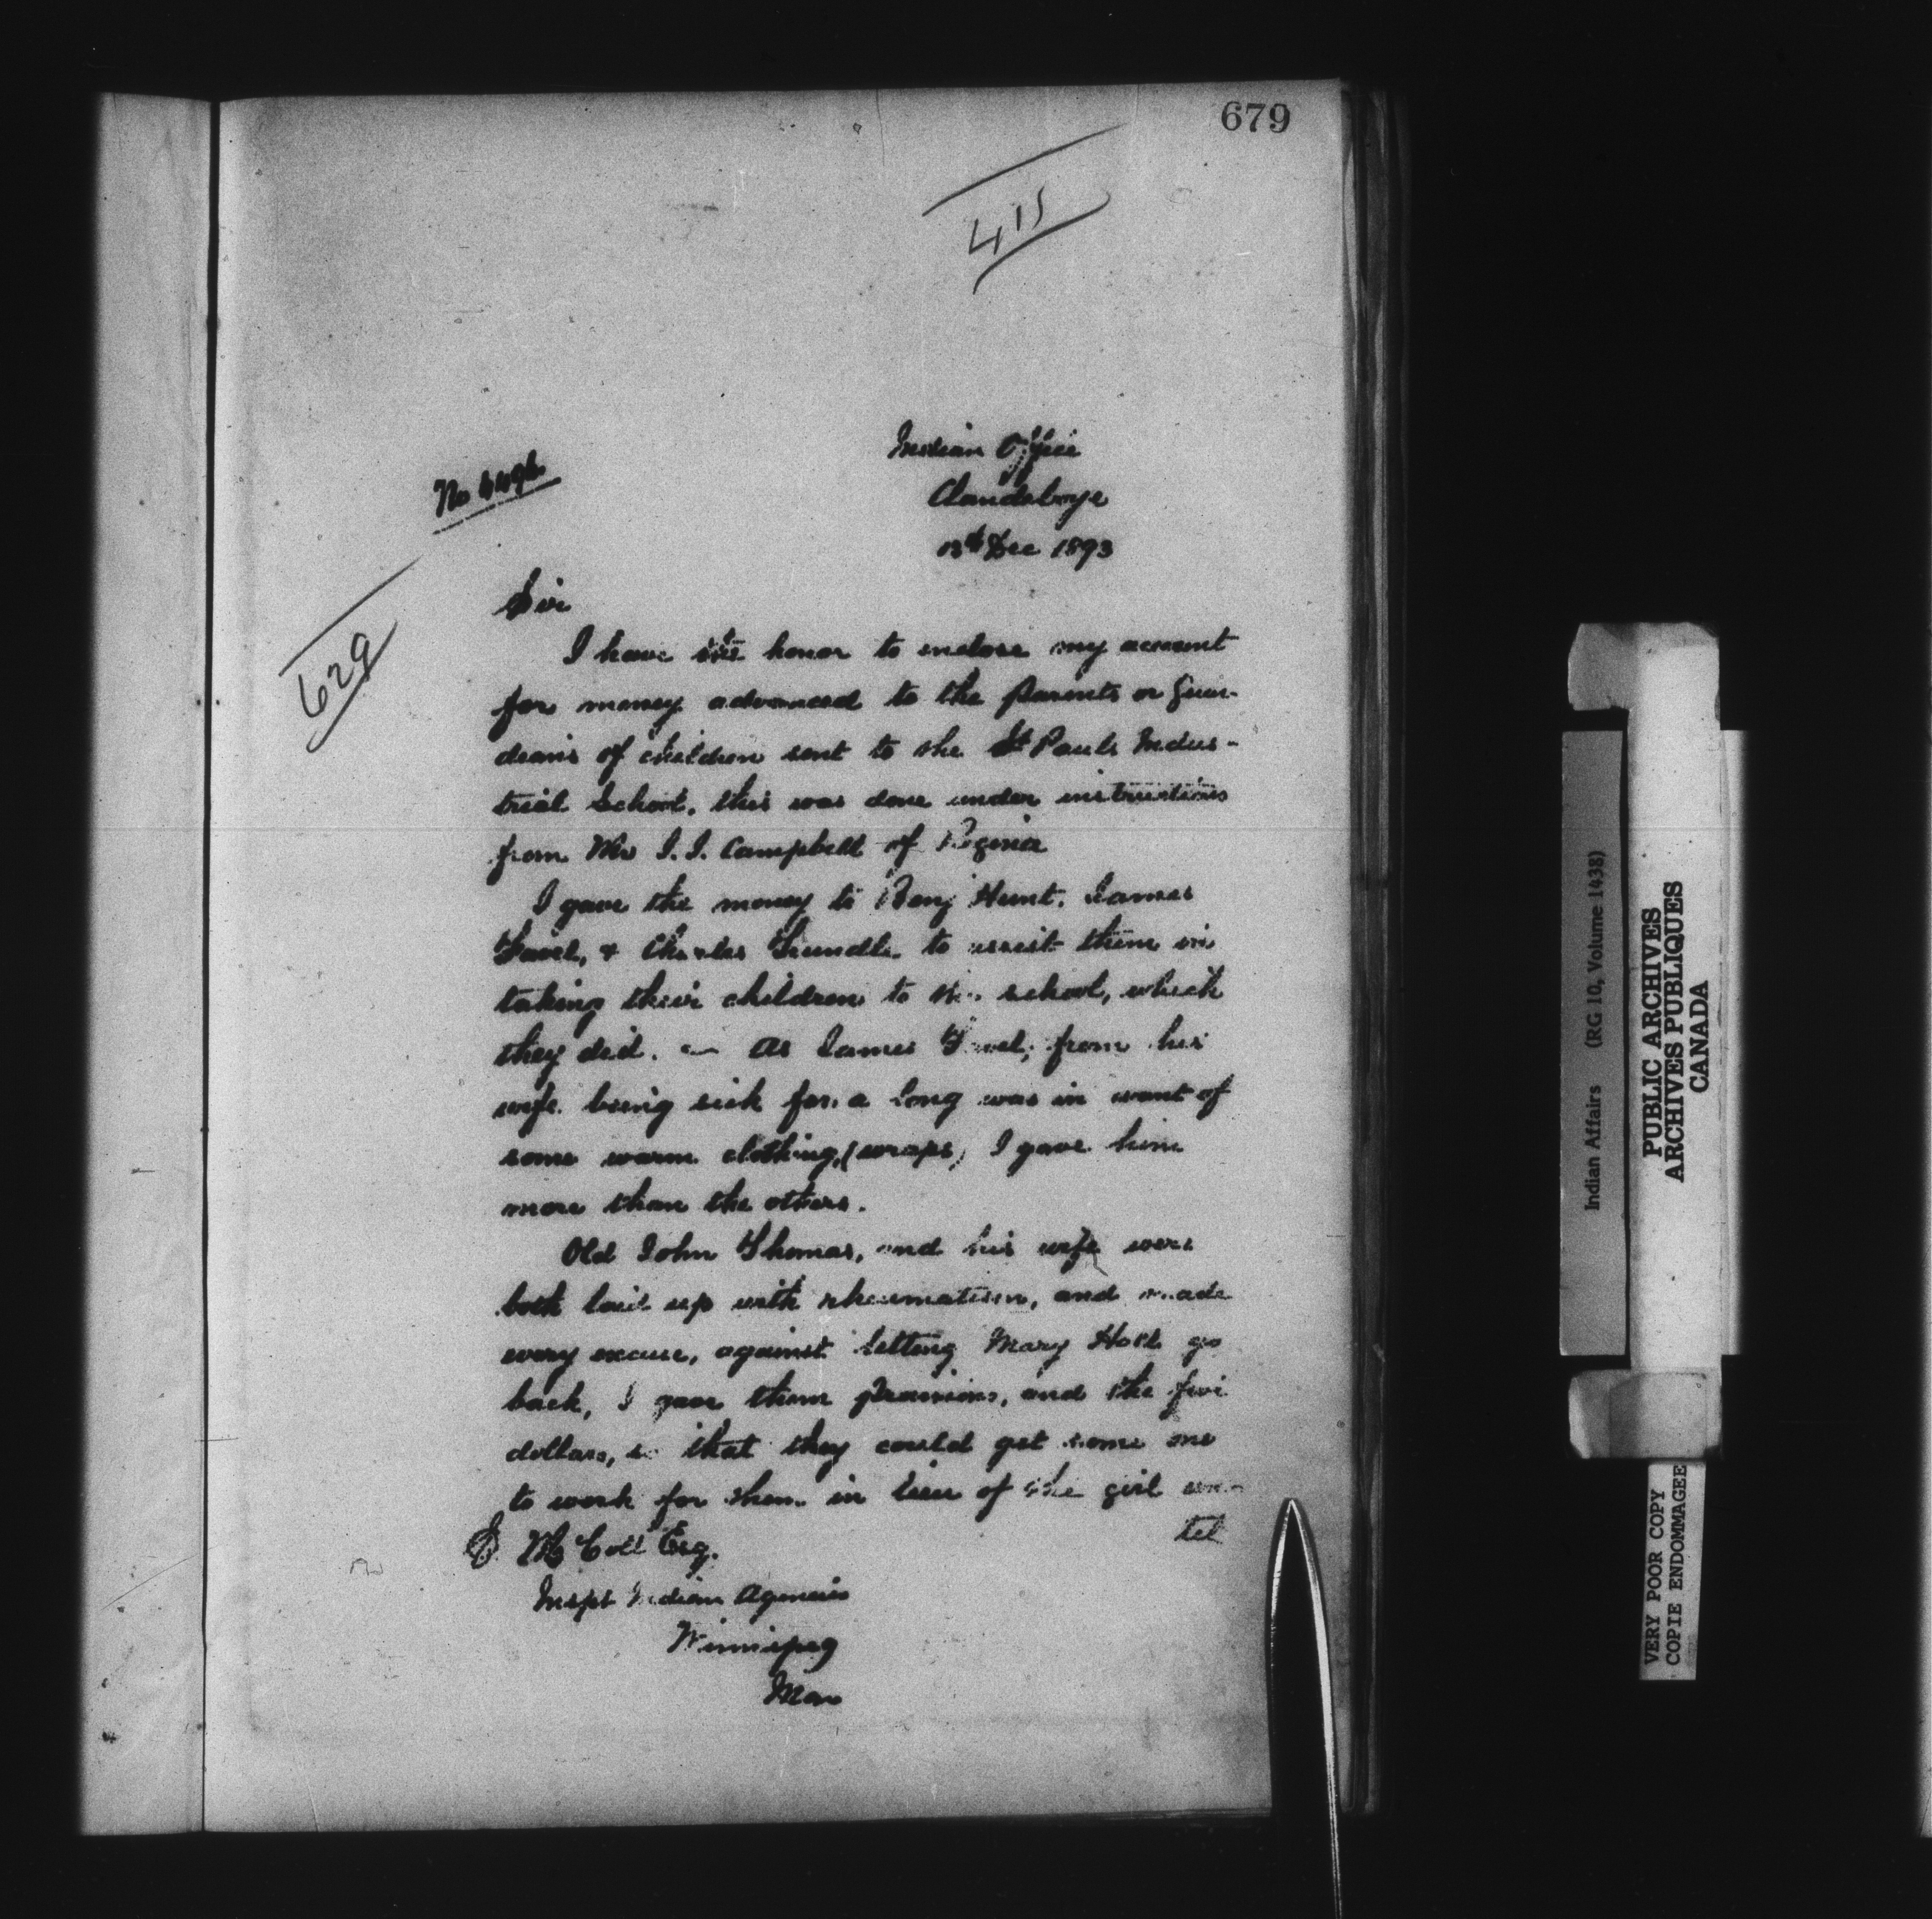 679
415
Indian Office
Clandeboye
No
13th Dec 1893
629
Sir
I have the honor to enclose my account
for money advanced to the parents or Guar-
deans of children sent to the St Pauls Indus-
trial School. this was done under instructions
from Mr J. J. Campbell of Regina
I gave the money to Benj Hunt. James
Favel, & Charles Trundle to assist them in
taking their children to the school, which
they did. – As James Favel, from his
wife being sick for a long was in want of
some warm clothing, (wraps) I gave him
more than the others.
Old John Thomas, and his wife were
both laid up with rheumatism, and made
every excuse, against letting Mary Hall go
back, I gave them provisions, and the five
dollars, so that they could get some one
to work for them in lieu of the girl un-
til
E McColl Esq.
Inspt Indian Agencies
Winnipeg
Man
Indian Affairs (RG 10, Volume 1438)
PUBLIC ARCHIVES
ARCHIVES PUBLIQUES
CANADA
VERY POOR COPY
COPIE ENDOMMAGEE